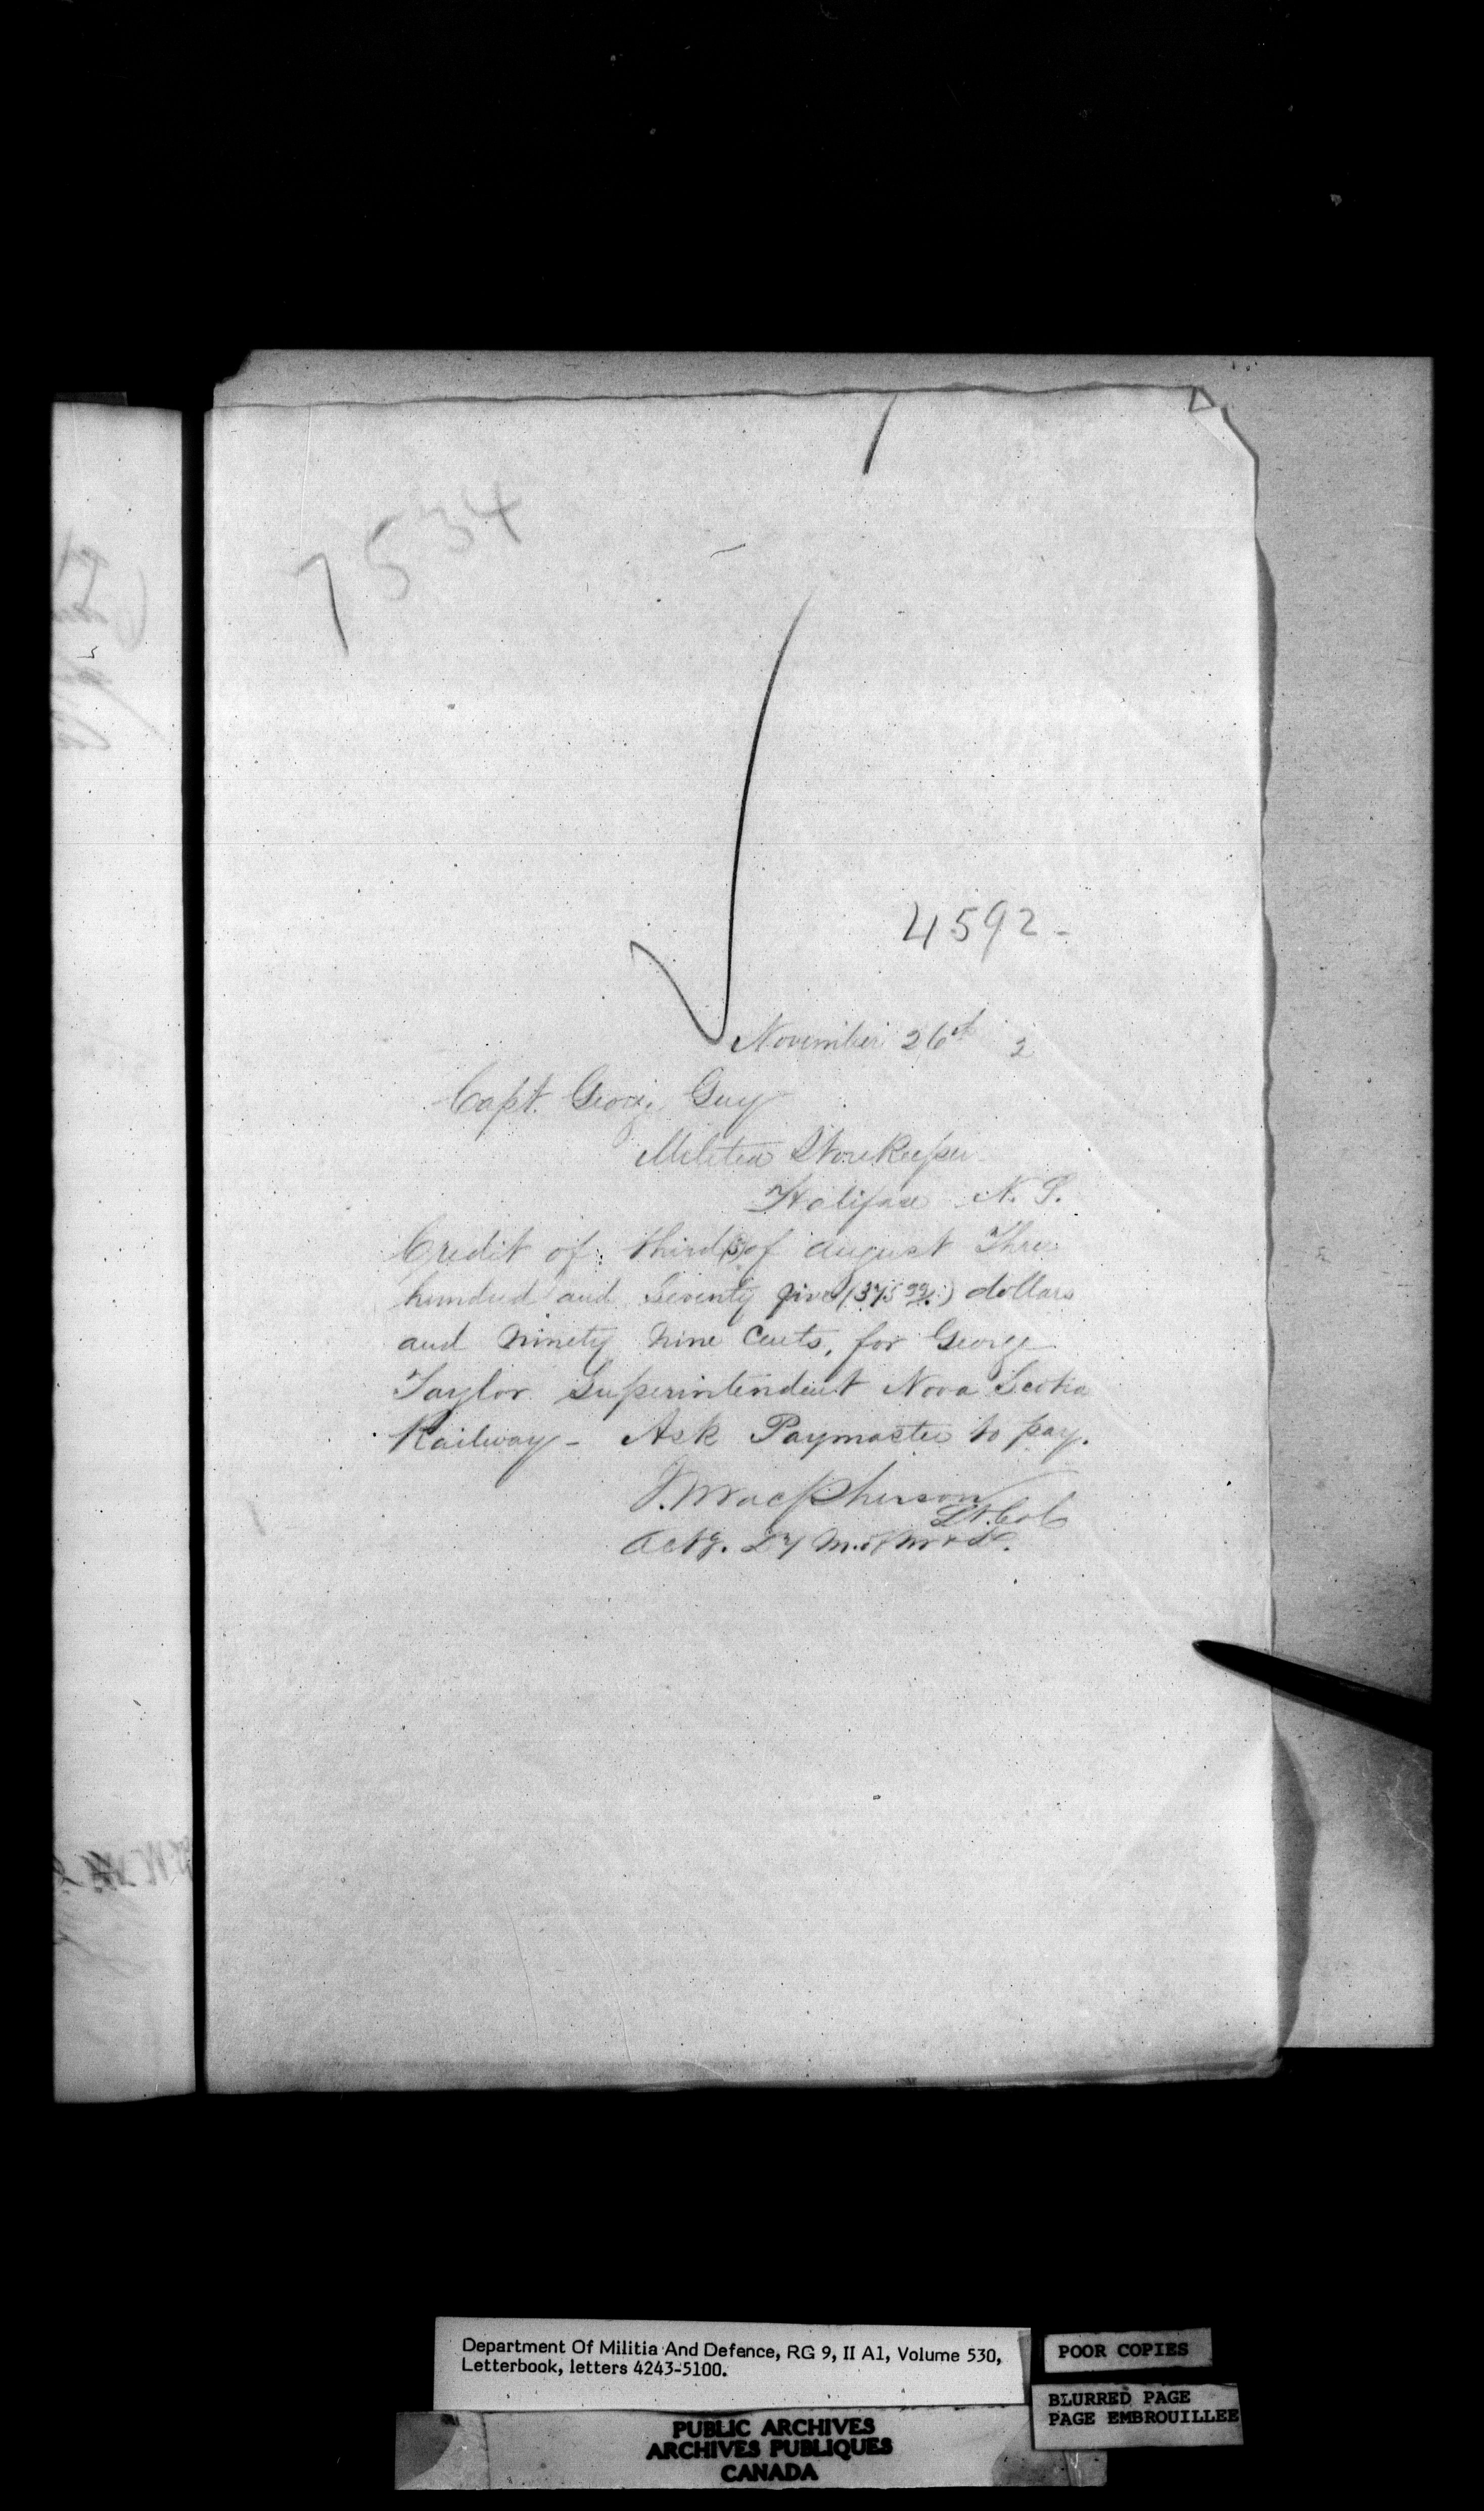 7534
4592-
November 26th 2
Capt. George Guy
Militia Storekeeper
Halifax N. S.
Credit of third (3) of august Three
hundred and Seventy five (375 99/.) dollars
and Ninety Nine Cents, for George
Taylor Superintendent Nova Scotia
Railway - Ask Paymaster to pay.
J. Macpherson
Lt. Col
Actg. Dy M. of M & D.
Department Of Militia And Defence, RG 9, II A1, Volume 530,
Letterbook, letters 4243-5100.
POOR COPIES
BLURRED PAGE
PAGE EMBROUILLEE
PUBLIC ARCHIVES
ARCHIVES PUBLIQUES
CANADA